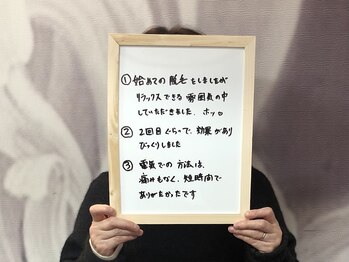 ① 始めての脱毛をしましたが
リラックスできる雰囲気の中
していただきました。ホッ。
② 2回目ぐらいで、効果があり
びっくりしました
③ 電気での方法は、
痛みもなく、短時間で
ありがたかったです